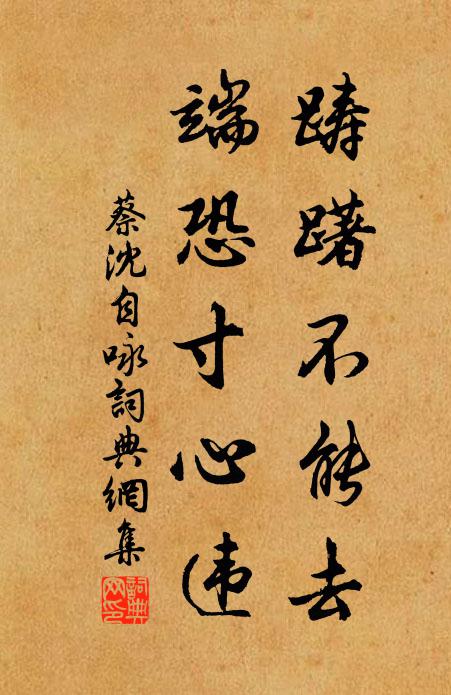 踌躇不能去
端恐寸心违
蔡沈自咏詞典網集
詞典網印